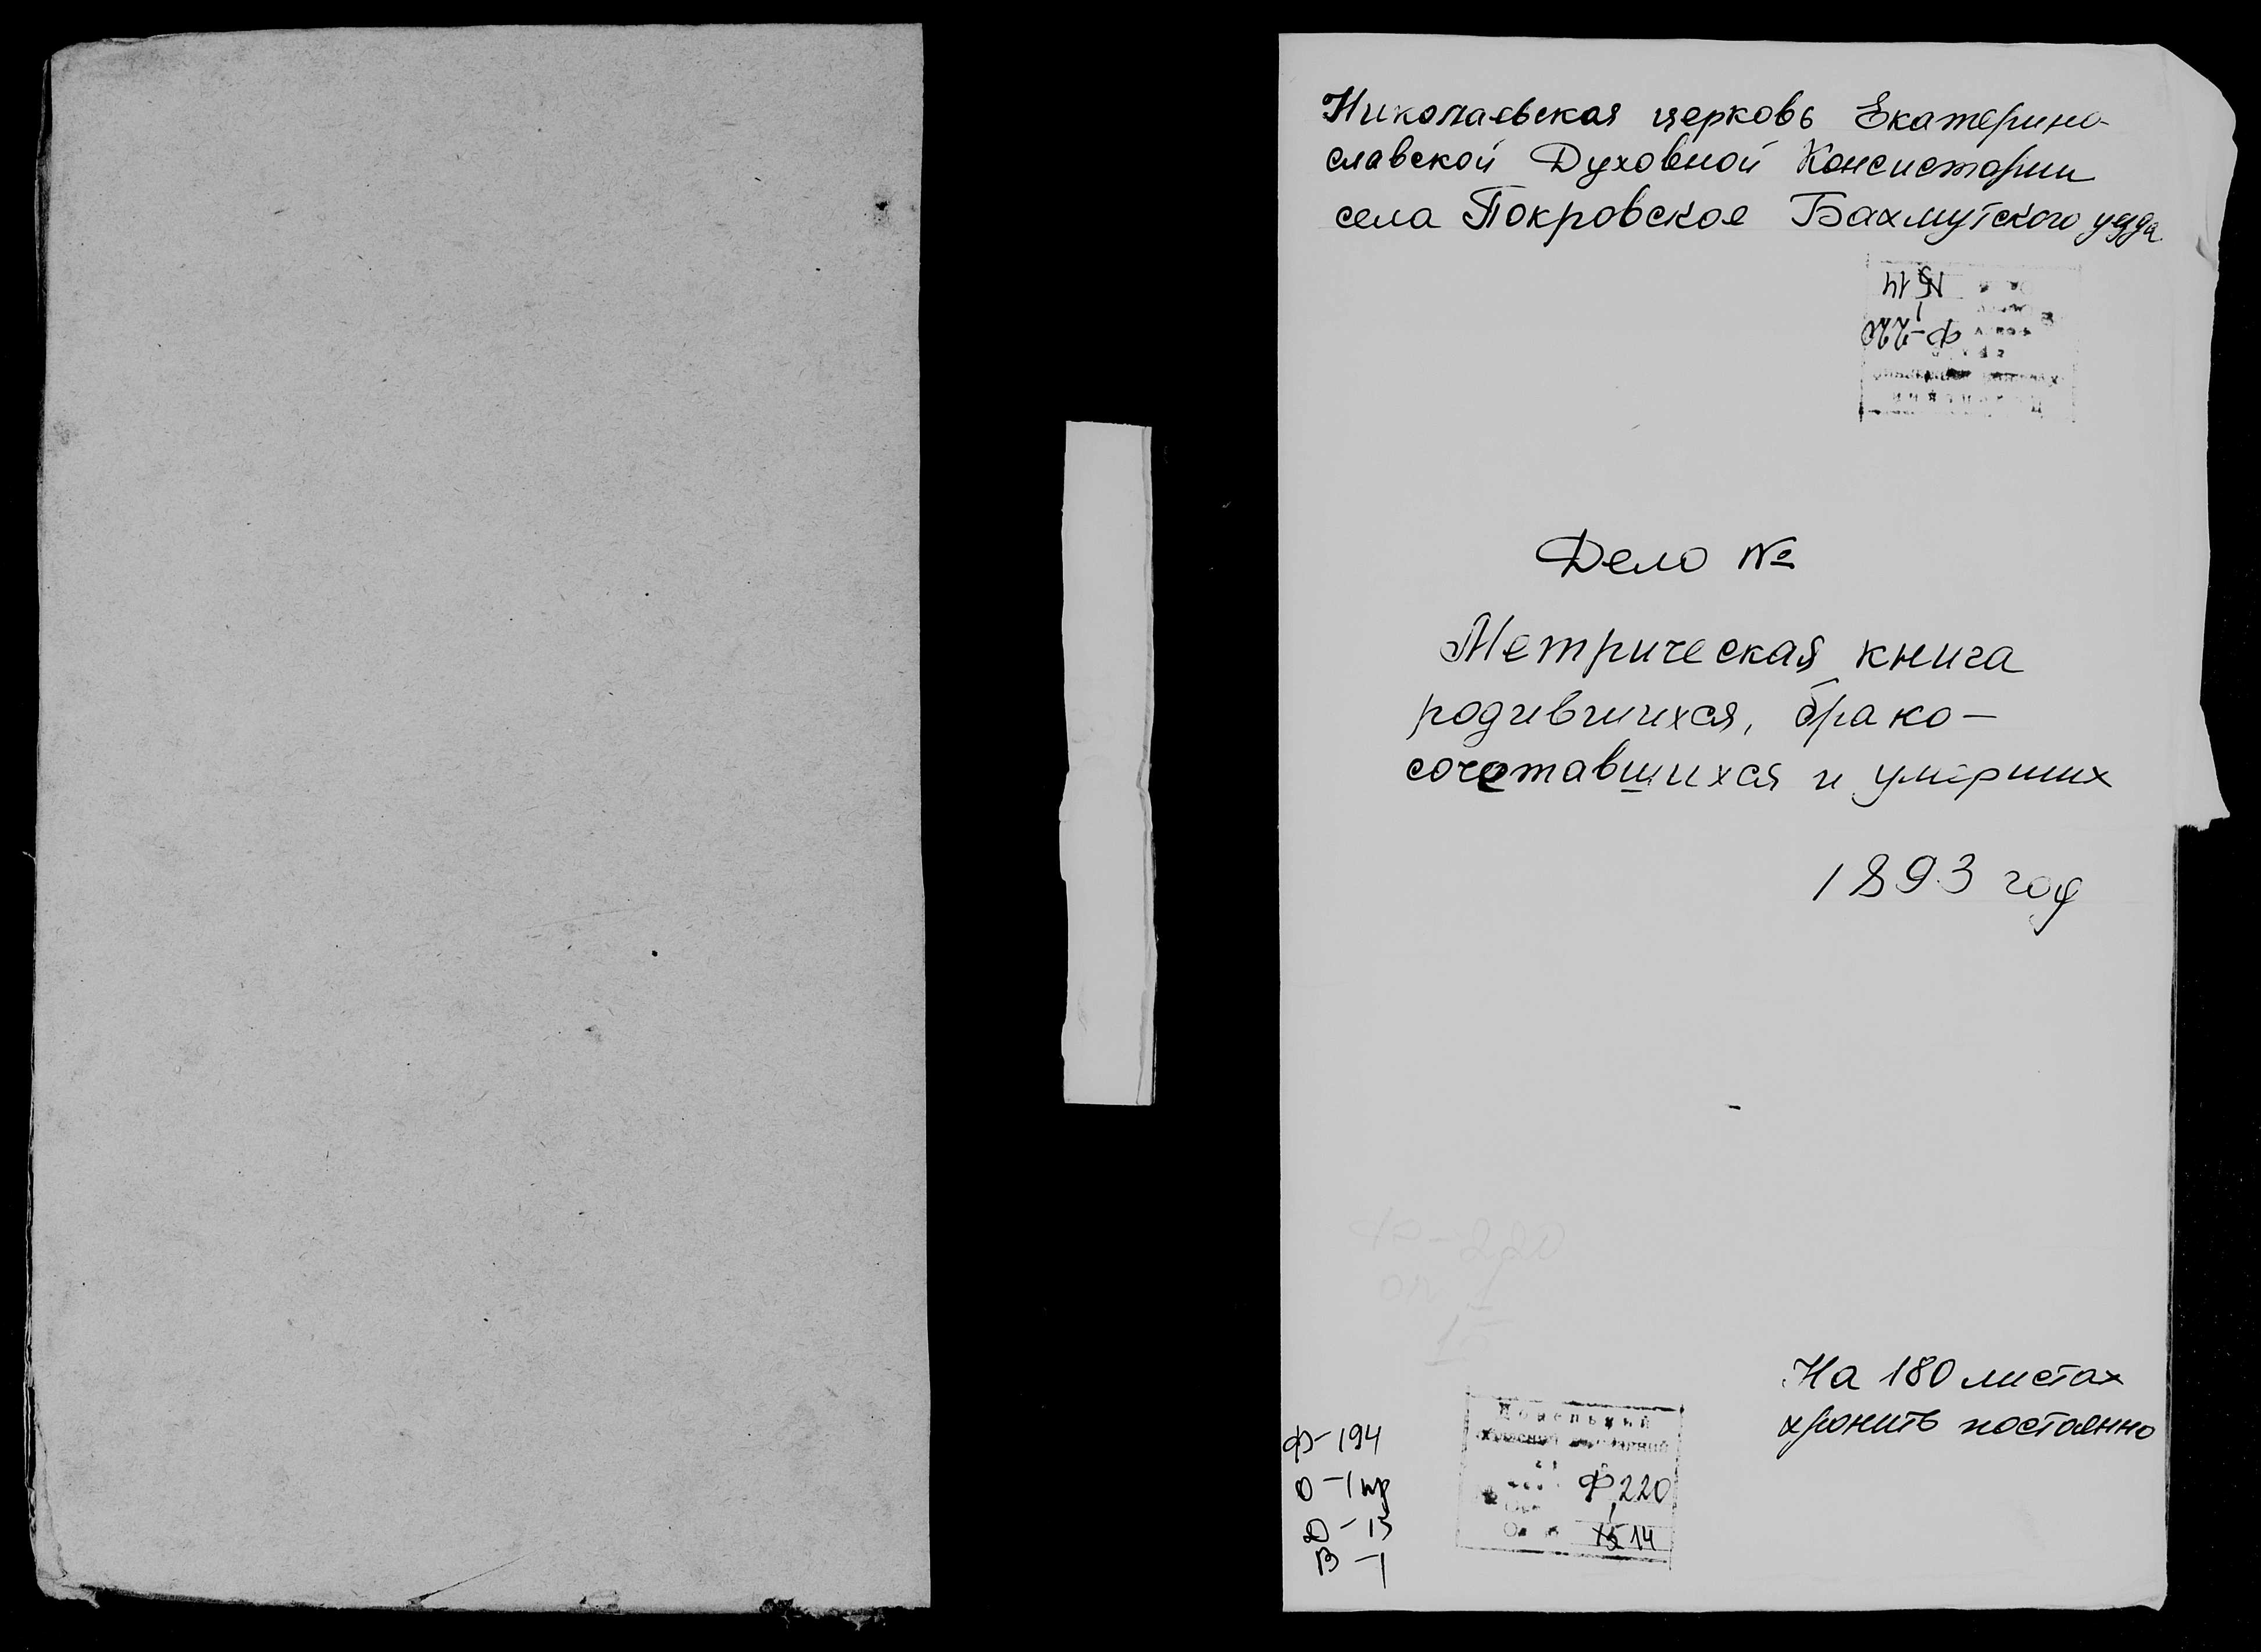 Николаевская церковь Екатерино-
славской Духовной Консистории
села Покровское Бахмутского уезда
№ 14
1
Ф-220
Дело №
Метрическая книга
родившихся, брако-
сочетавшихся и умерших
1893 год
Ф-220
оп 1
15
На 180 листах
хранить постоянно
Ф-194
О-1пр
Д-15
В-1
Ф 220
1
14